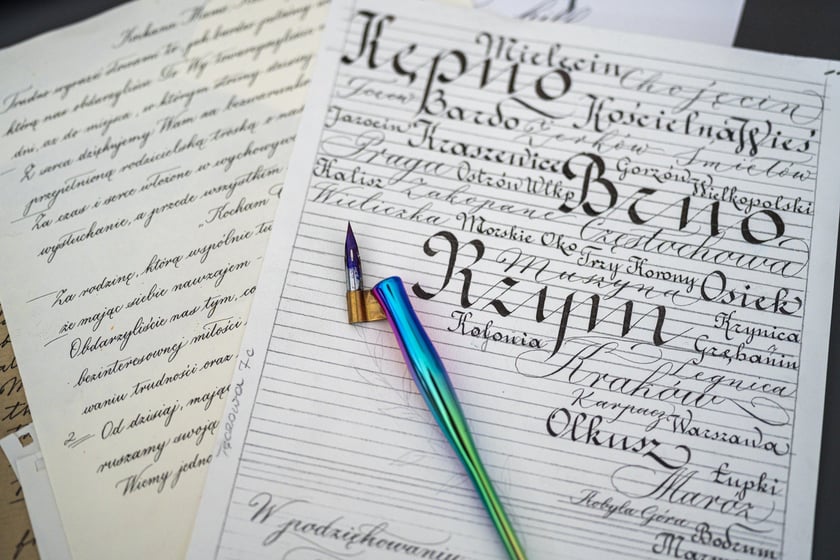 Kochana Mamo
Trudno wyrazić słowami to, jak bardzo jesteśmy
którą nas obdarzyliście. Do Wy towarzyszyliście
dni, aż do miejsca, w którym strony
Z serca dziękujemy Wam za bezwarunkową
przyjemną rodzicielską troskę o nas
Za czas i serce włożone w wychowywanie
wysłuchanie, a przede wszystkim
„Kocham
Za rodzinę, którą wspólnie
że mając siebie nawzajem
Obdarzyliście nas tym, co
bezinteresownej miłości
waniu trudności oraz
Od dzisiaj, mając
ruszamy swoją
Wiemy jedno
Mielęcin Chojęcin
Kępno
Bardo Kościelna Wieś
Jarocin Kraszewice Żerków Śmiełów
Praga Ostrów Wlkp. Gorzów Wielkopolski
Kalisz Zakopane Brno
Wieliczka Morskie Oko Częstochowa
Trzy Korony
Rzym Muszyna Osiek
Krynica
Kolonia Grębanin
Kraków Legnica
Karpacz Warszawa
Olkusz
Łupki
Maróz
Kobyla Góra Bodzum
W podziękowaniu